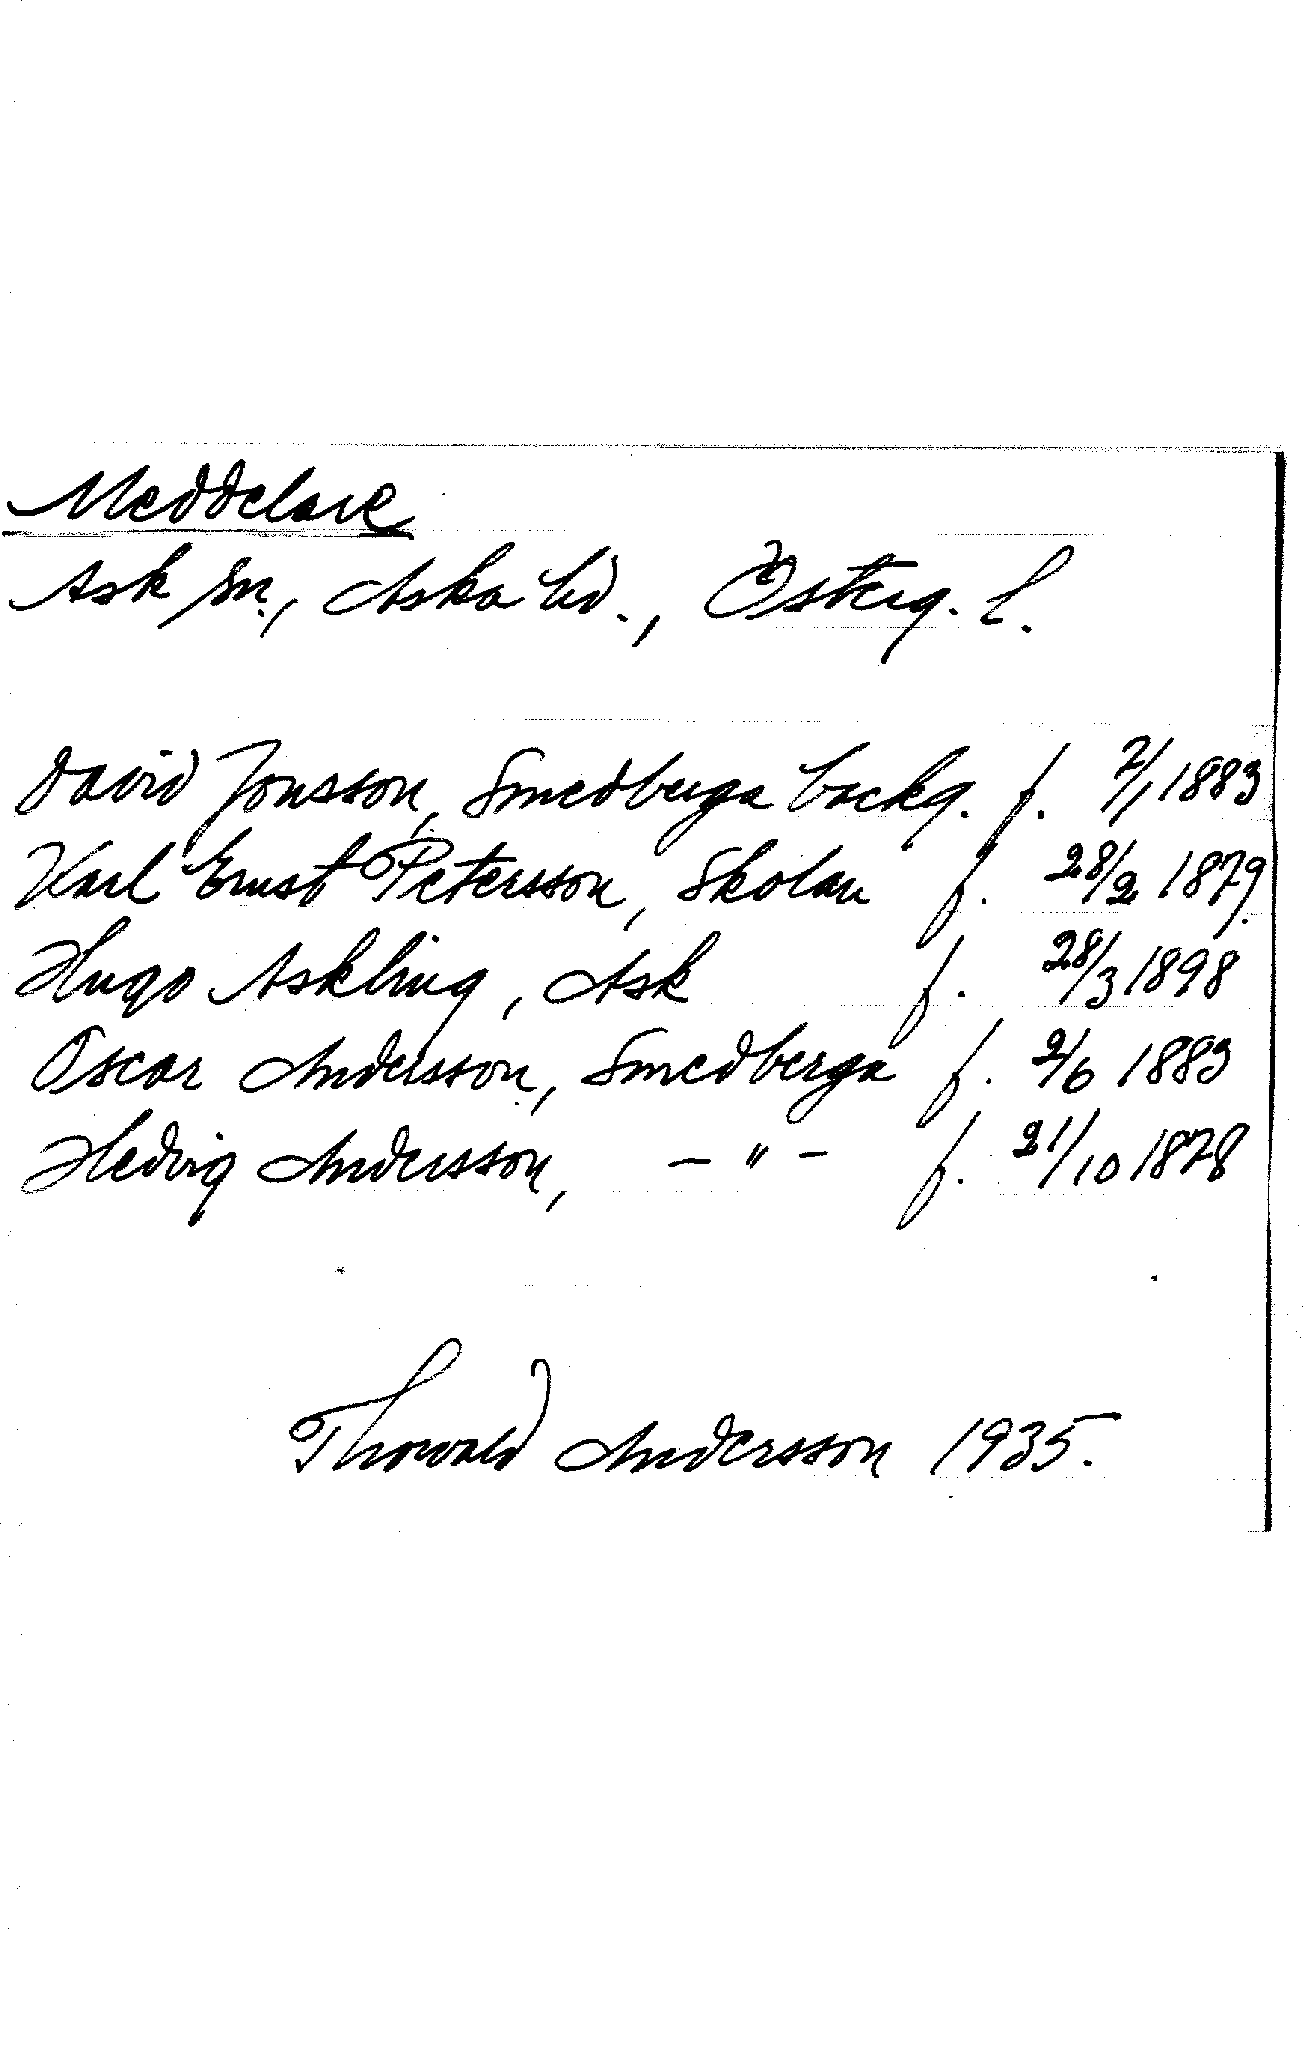 Meddelare
Ask sn., Aska hd., Österg. l.
David Jonsson, Smedberga backg. f. 2/1 1883
Karl Ernst Petersson, Skolan f. 28/2 1879.
Hugo Askling, Ask f. 28/3 1898
Oscar Andersson, Smedberga f. 2/6 1883
Hedvig Andersson, - " - f. 21/10 1878
Thorvald Andersson 1935.